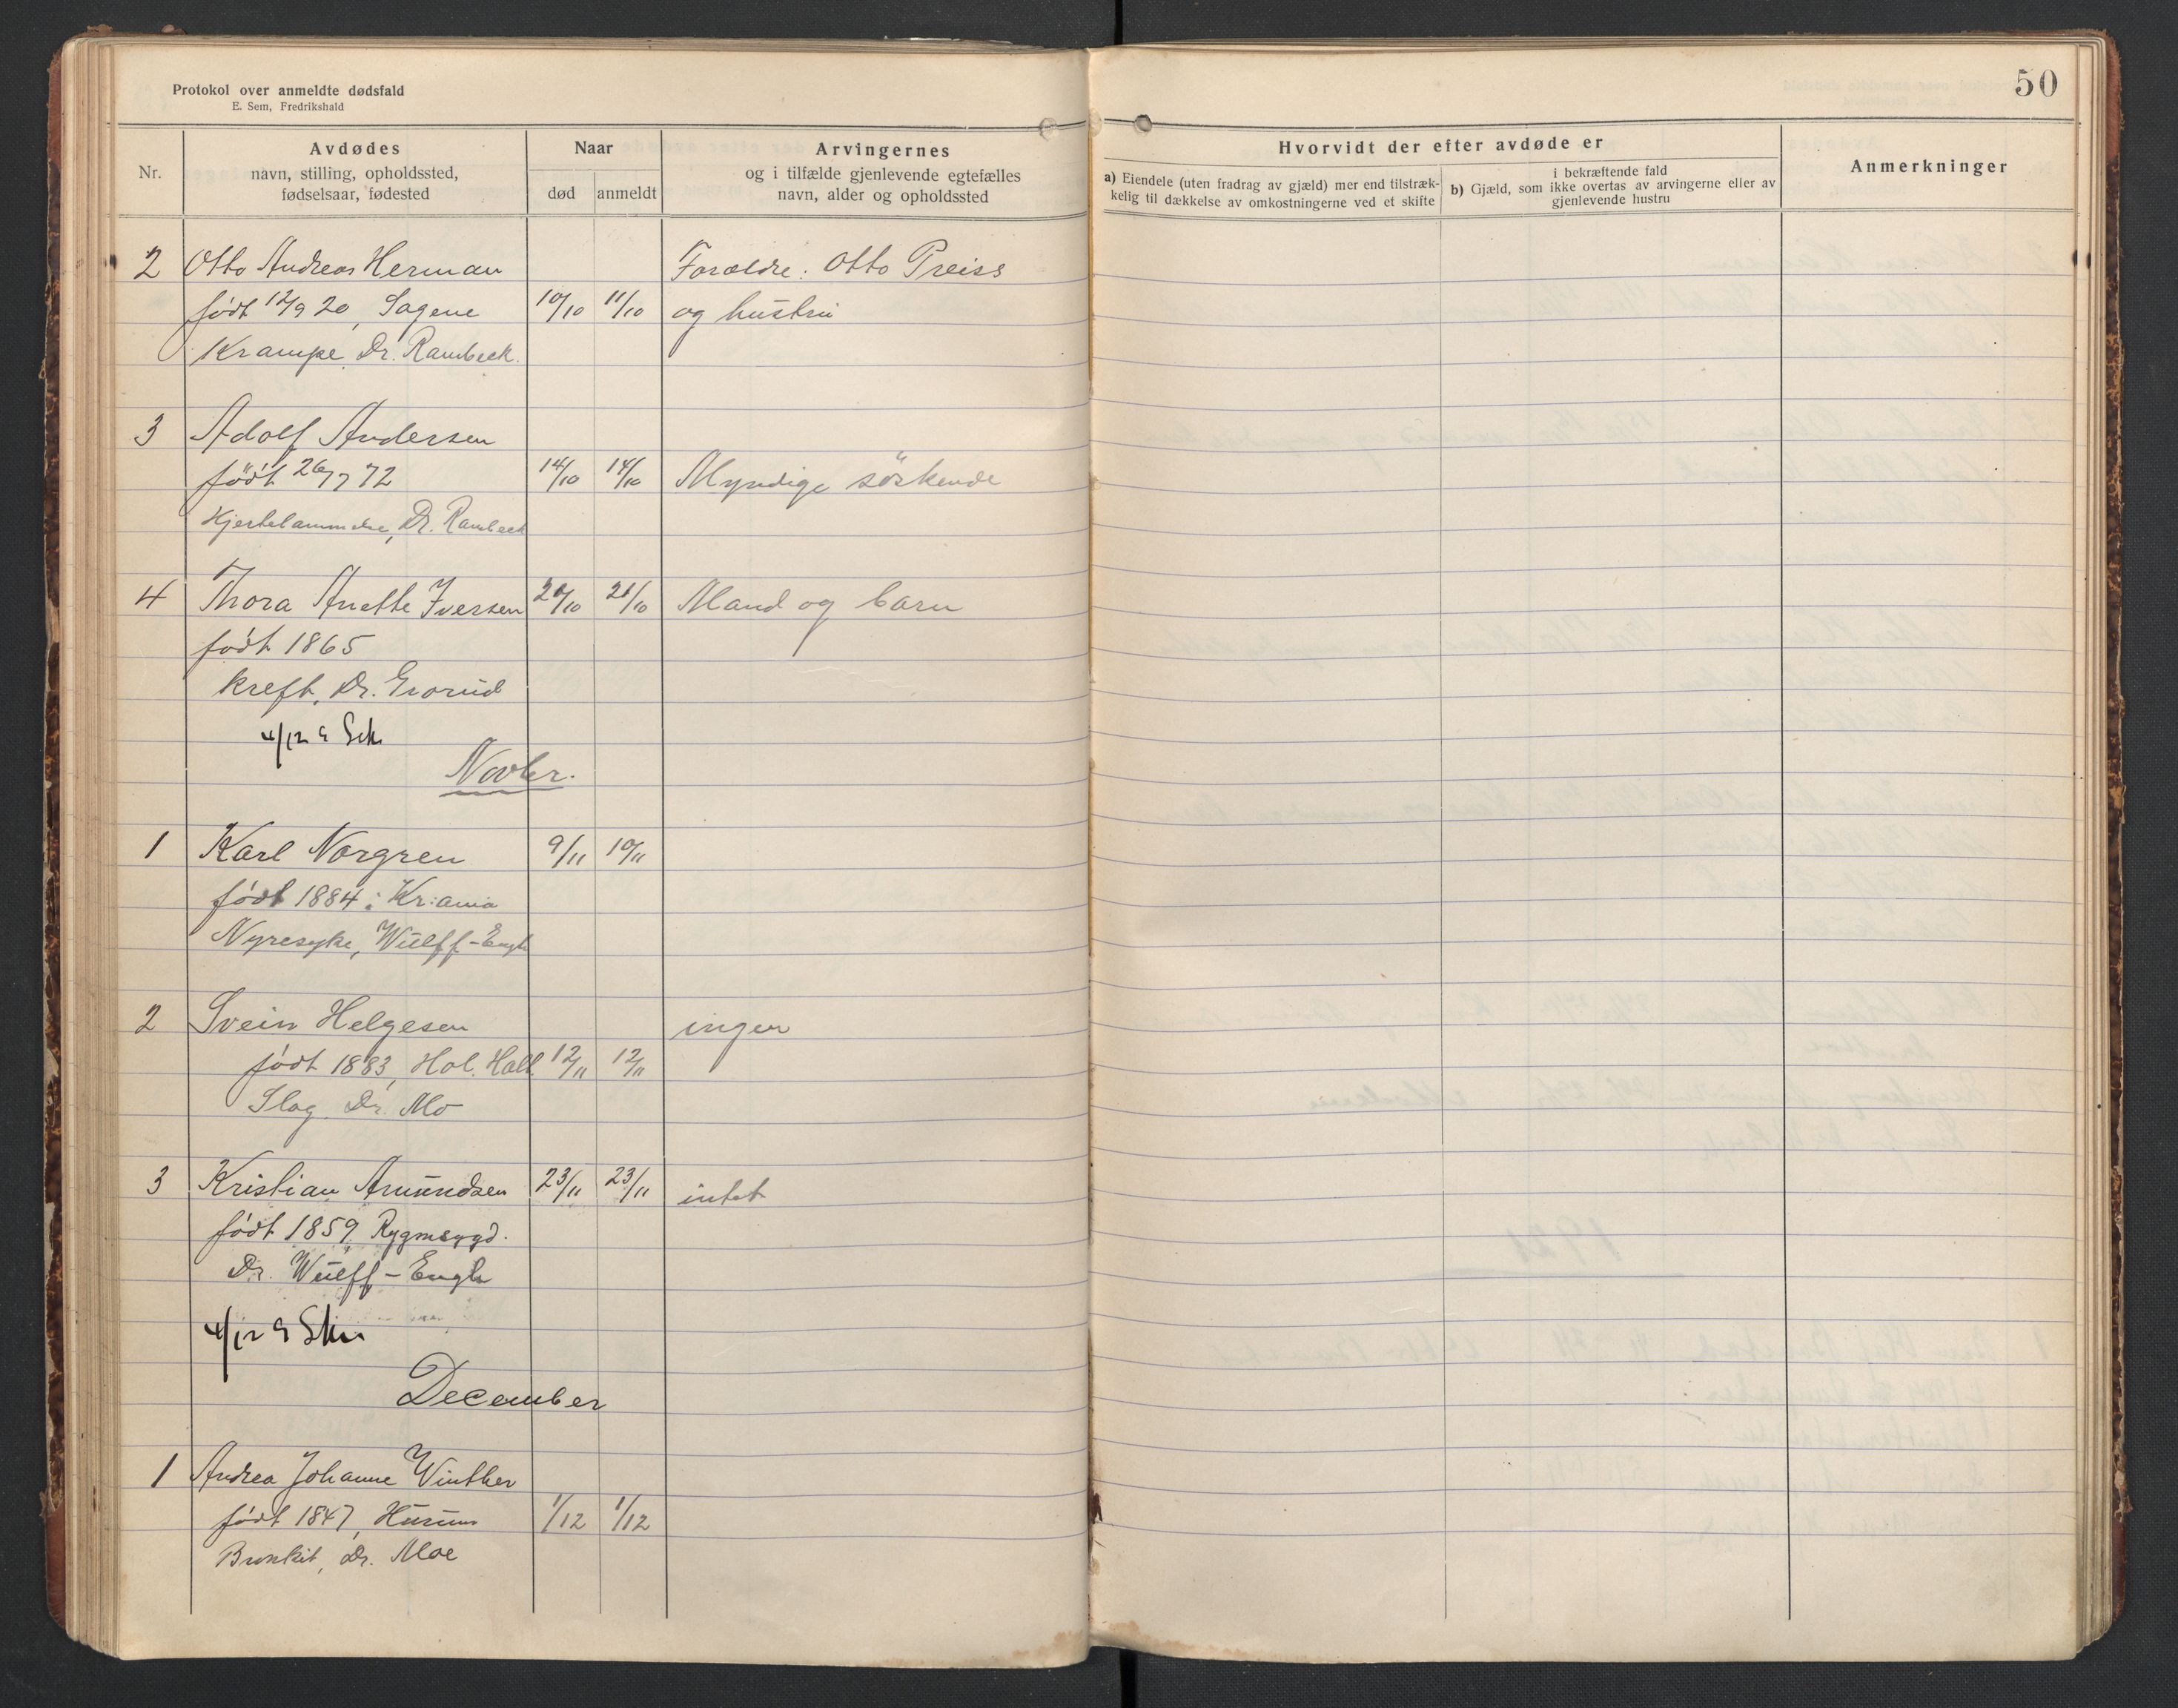 Protokol over anmeldte dødsfald
E. Sem, Fredrikshald
50
Nr.
Avdødes
navn, stilling, opholdssted,
fødselsaar, fødested
Naar
død anmeldt
Arvingernes
og i tilfælde gjenlevende egtefælles
navn, alder og opholdssted
Hvorvidt der efter avdøde er
a) Eiendele (uten fradrag av gjæld) mer end tilstræk-
kelig til dækkelse av omkostningerne ved et skifte
i bekræftende fald
b) Gjæld, som ikke overtas av arvingerne eller av
gjenlevende hustru
Anmerkninger
2 Otto Andreas Herman Forældre: Otto Preiss
født 12/9 20, Sagene 10/10 11/10 og hustru
Krampe, Dr. Rambeck.
3 Adolf Andersen
født 26/7 72 14/10 14/10 Myndige söskende
Hjertelammelse, Dr. Rambeck
4 Thora Anette Iversen 20/10 21/10 Mand og barn
født 1865
Kreft, Dr. Grorud
4/12
Novbr.
1 Karl Norgren 9/11 10/11
født 1884 i Kr:ania
Nyresyke, Wulff-Engh
2 Svein Helgesen ingen
født 1883, Hol. Hall. 12/11 12/11
Slag, Dr. Mo
3 Kristian Amundsen 23/11 23/11 intet
født 1859, Rygmsygd.
Dr. Wulff-Engh
4/12
December
1 Andrea Johanne Winther
født 1847, Hurum 1/12 1/12
Bronkit, Dr. Moe